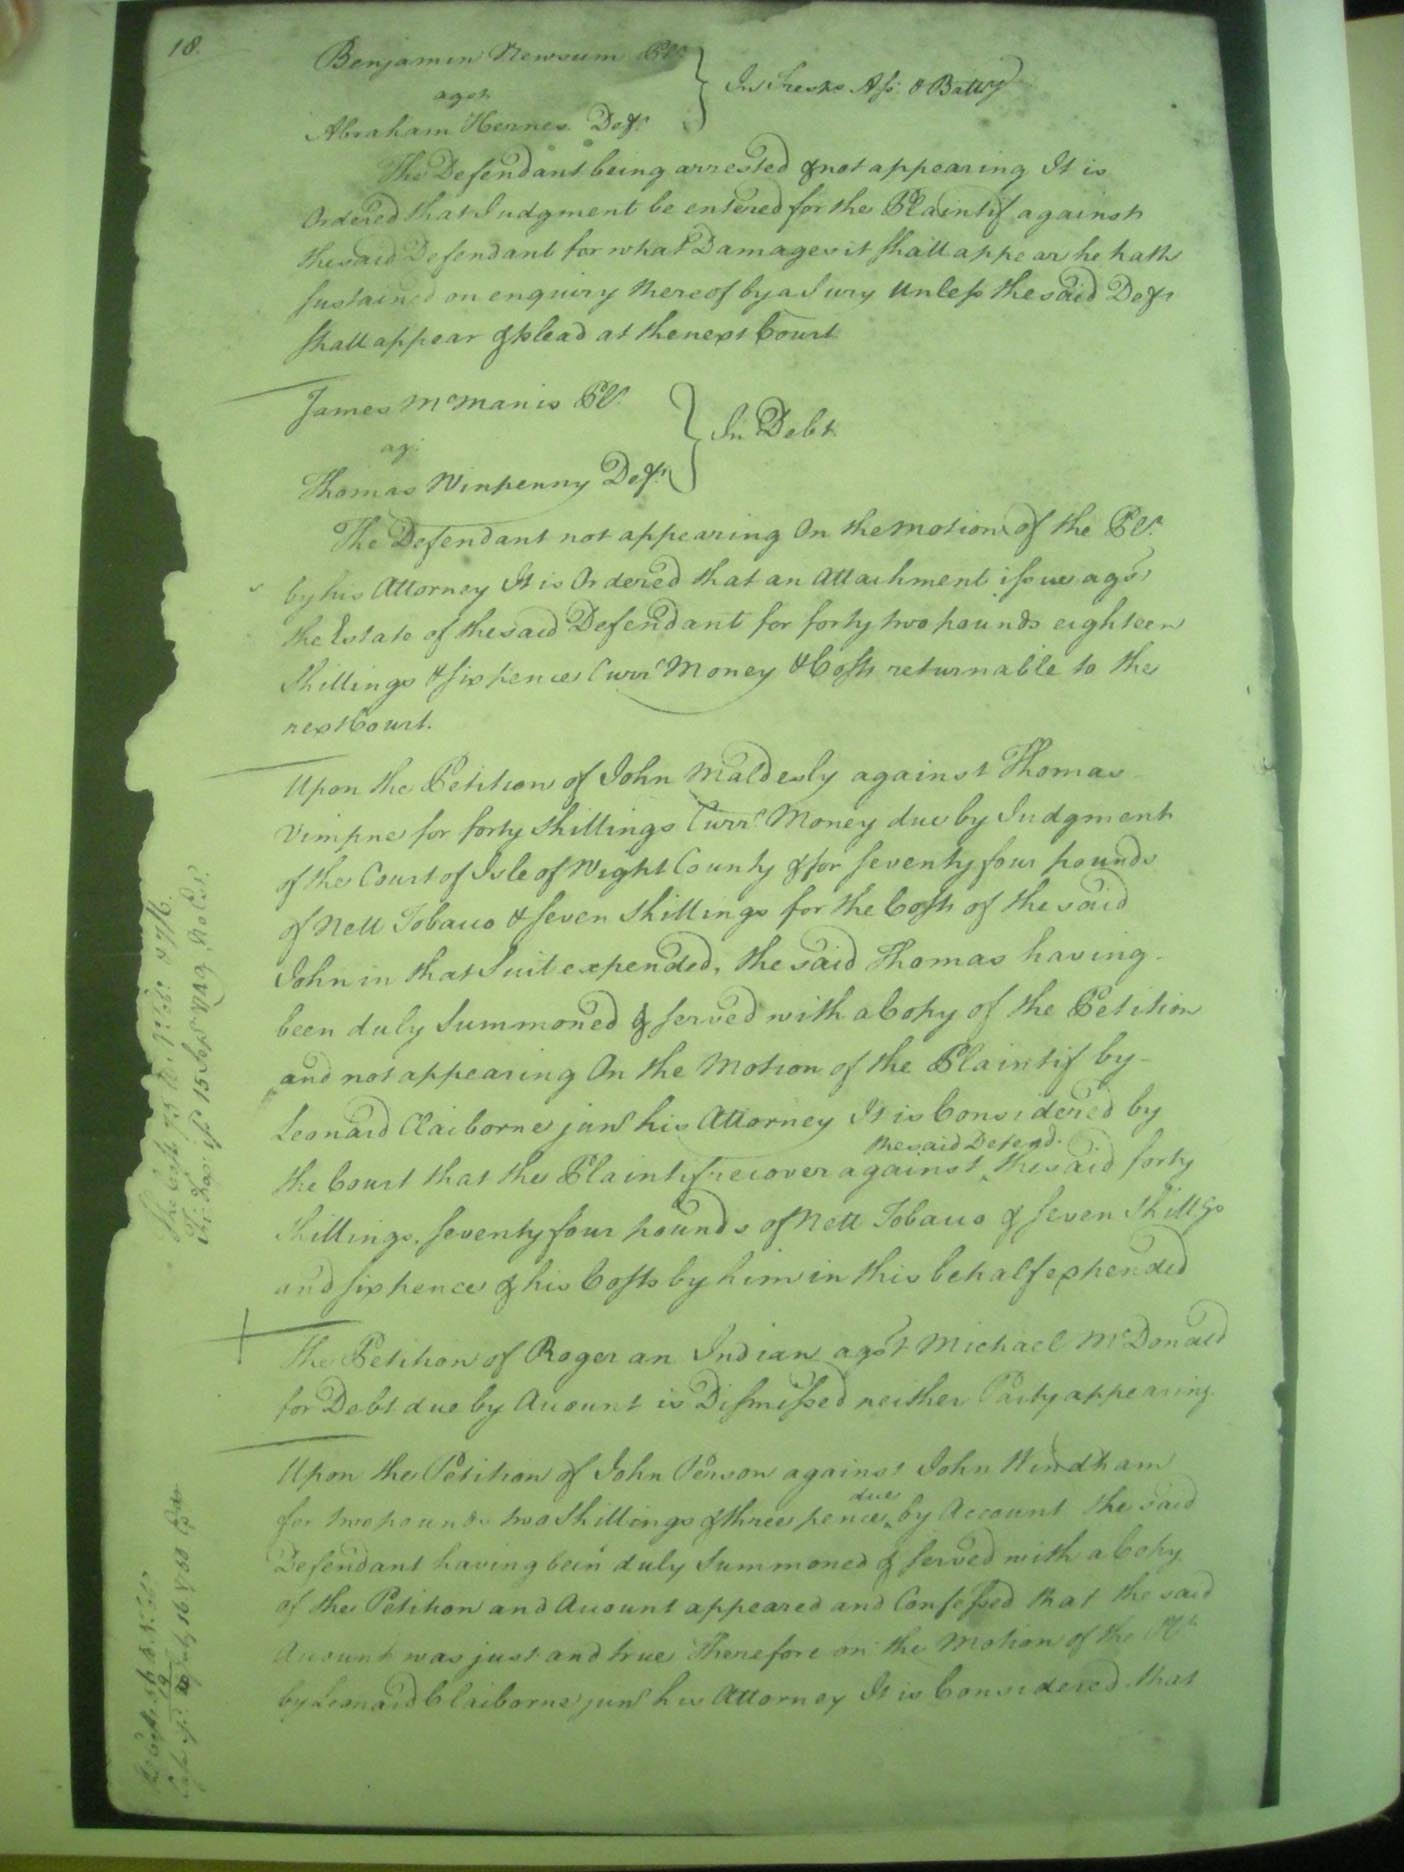 18.
Benjamin Newsum Pl.
agst
Abraham Hernes Deft
In Tresps Ass. & Batty
The Defendant being arrested & not appearing It is
Ordered that Judgment be entered for the Plaintif against
the said Defendant for what Damages it shall appear he hath
sustained on enquiry thereof by a Jury Unless the said Deft
shall appear & plead at the next Court
James McManis Pl.
ag.
Thomas Winpenny Deft
In Debt
The Defendant not appearing On the motion of the Pl.
by his Attorney It is Ordered that an Attachment issue agst
the Estate of the said Defendant for forty two pounds eighteen
shillings & six pence Curr Money & Costs returnable to the
next Court.
Upon the Petition of John Maldesly against Thomas
Vimpne for forty shillings Curr. Money due by Judgment
of the Court of Isle of Wight County & for seventy four pounds
of Nett Tobacco & seven shillings for the Costs of the said
John in that Suit expended, the said Thomas having
been duly Summoned & served with a Copy of the Petition
and not appearing On the Motion of the Plaintif by
Leonard Claiborne junr his Attorney It is Considered by
the said Defend.
the Court that the Plaintif recover against the said forty
shillings, seventy four pounds of Nett Tobacco & seven shillgs
and six pence & his Costs by him in this behalf expended
The Petition of Roger an Indian agst Michael McDonald
for Debt due by Account is Dismissed neither Party appearing.
Upon the Petition of John Person against John Windham
due
for two pounds two shillings & three pence by Account the said
Defendant having been duly Summoned & served with a Copy
of the Petition and Account appeared and Confessed that the said
Account was just and true Therefore on the Motion of the Pl.
by Leonard Claiborne junr his Attorney It is Considered that